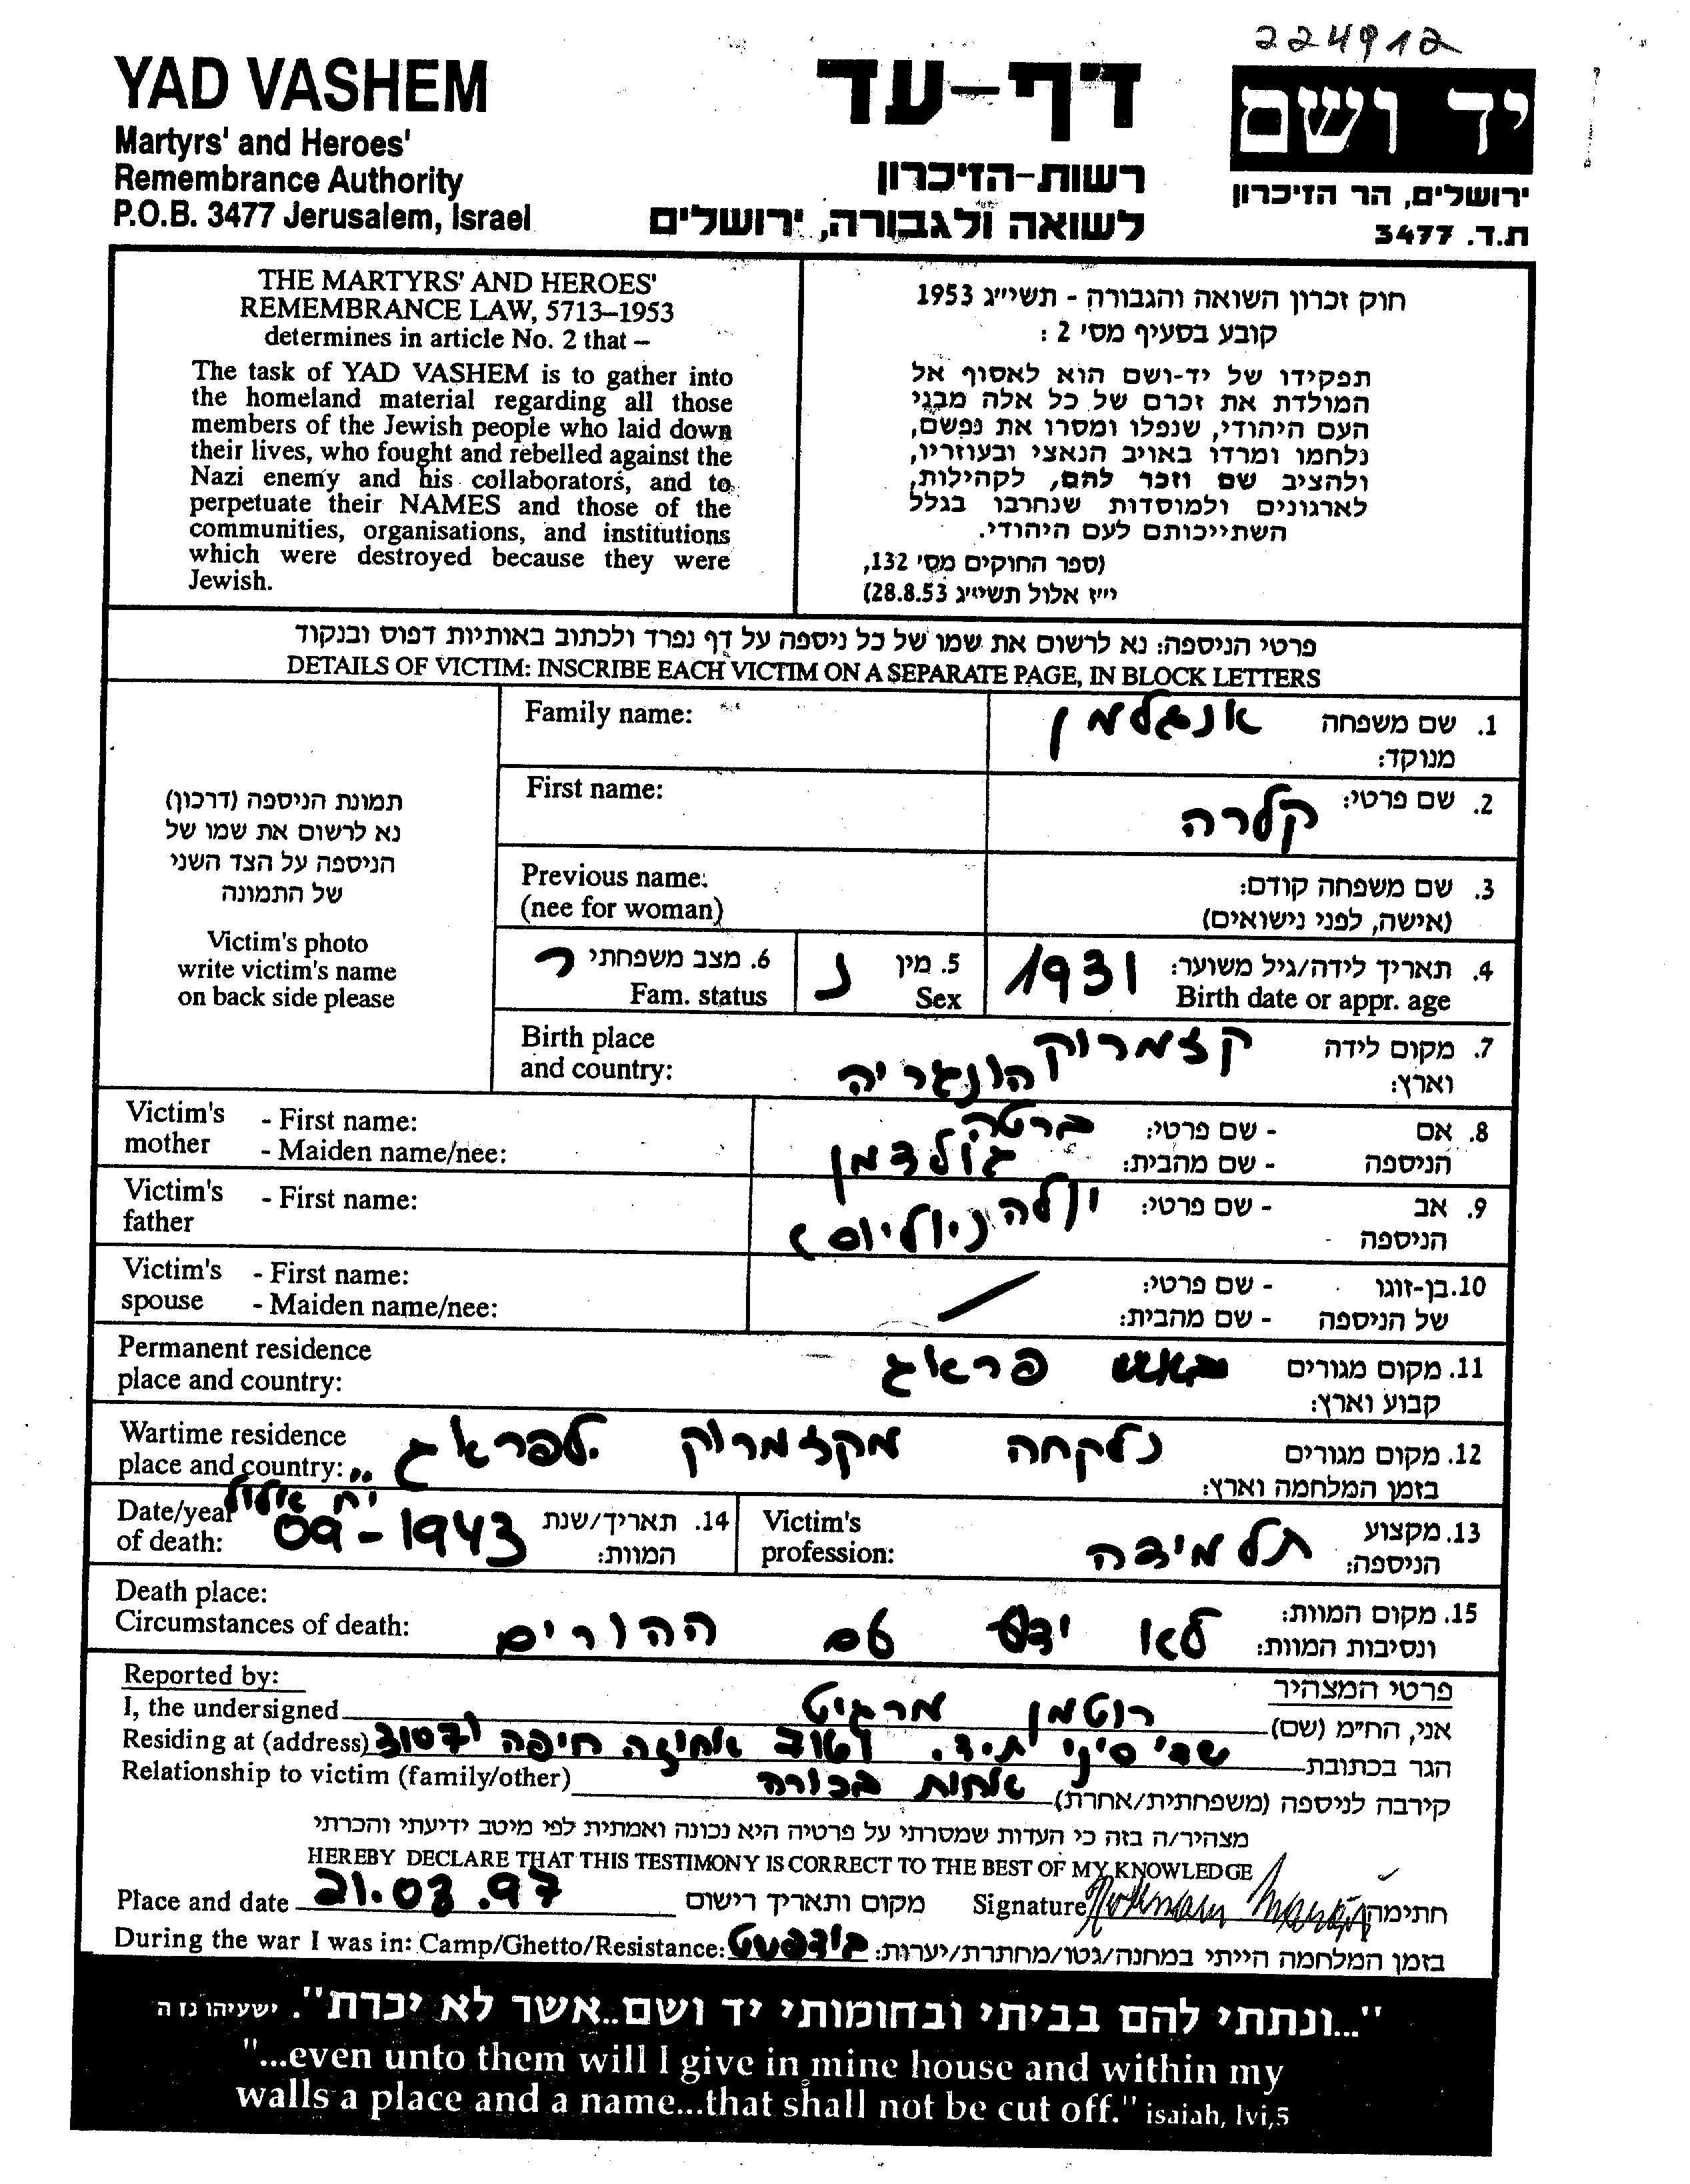 224912
YAD VASHEM
Martyrs' and Heroes'
Remembrance Authority
P.O.B. 3477 Jerusalem, Israel
דף-עד
רשות-הזיכרון
לשואה ולגבורה, ירושלים
יד ושם
ירושלים, הר הזיכרון
ת.ד. 3477
THE MARTYRS' AND HEROES'
REMEMBRANCE LAW, 5713–1953
determines in article No. 2 that –
The task of YAD VASHEM is to gather into
the homeland material regarding all those
members of the Jewish people who laid down
their lives, who fought and rebelled against the
Nazi enemy and his collaborators, and to
perpetuate their NAMES and those of the
communities, organisations, and institutions
which were destroyed because they were
Jewish.
חוק זכרון השואה והגבורה - תשי״ג 1953
קובע בסעיף מס׳ 2 :
תפקידו של יד-ושם הוא לאסוף אל
המולדת את זכרם של כל אלה מבני
העם היהודי, שנפלו ומסרו את נפשם,
נלחמו ומרדו באויב הנאצי ובעוזריו,
ולהציב שם וזכר להם, לקהילות,
לארגונים ולמוסדות שנחרבו בגלל
השתייכותם לעם היהודי.
(ספר החוקים מס׳ 132,
י״ז אלול תשי״ג 28.8.53)
פרטי הניספה: נא לרשום את שמו של כל ניספה על דף נפרד ולכתוב באותיות דפוס ובנקוד
DETAILS OF VICTIM: INSCRIBE EACH VICTIM ON A SEPARATE PAGE, IN BLOCK LETTERS
תמונת הניספה (דרכון)
נא לרשום את שמו של
הניספה על הצד השני
של התמונה
Victim's photo
write victim's name
on back side please
1. שם משפחה
מנוקד:
אנגלמן
Family name:
2. שם פרטי:
קלרה
First name:
3. שם משפחה קודם:
(אישה, לפני נישואים)
Previous name:
(nee for woman)
4. תאריך לידה/גיל משוער:
Birth date or appr. age
1931
5. מין
Sex
נ
6. מצב משפחתי
Fam. status
ר
7. מקום לידה
וארץ:
קזמרוק
הונגריה
Birth place
and country:
8. אם
הניספה
- שם פרטי:
- שם מהבית:
ברטה
גולדמן
Victim's
mother
- First name:
- Maiden name/nee:
9. אב
הניספה
- שם פרטי:
יולה (יוליוס)
Victim's
father
- First name:
10. בן-זוגו
של הניספה
- שם פרטי:
- שם מהבית:
Victim's
spouse
- First name:
- Maiden name/nee:
11. מקום מגורים
קבוע וארץ:
פראג
Permanent residence
place and country:
12. מקום מגורים
בזמן המלחמה וארץ:
נלקחה מקזמרוק לפראג
Wartime residence
place and country:
13. מקצוע
הניספה:
תלמידה
Victim's
profession:
14. תאריך/שנת
המוות:
יח אילול
09-1943
Date/year
of death:
15. מקום המוות:
ונסיבות המוות:
לא ידוע עם ההורים
Death place:
Circumstances of death:
פרטי המצהיר
Reported by:
אני, הח״מ (שם) רוטמן מרגיט
I, the undersigned
הגר בכתובת שד׳ סיני אחוזה חיפה
Residing at (address)
קירבה לניספה (משפחתית/אחרת) אחות בכורה
Relationship to victim (family/other)
מצהיר/ה בזה כי העדות שמסרתי על פרטיה היא נכונה ואמתית לפי מיטב ידיעתי והכרתי
HEREBY DECLARE THAT THIS TESTIMONY IS CORRECT TO THE BEST OF MY KNOWLEDGE
Place and date 21.03.97 מקום ותאריך רישום Signature חתימה
During the war I was in: Camp/Ghetto/Resistance: בודפשט בזמן המלחמה הייתי במחנה/גטו/מחתרת/יערות:
"...ונתתי להם בביתי ובחומותי יד ושם..אשר לא יכרת". ישעיהו נו ה
"...even unto them will I give in mine house and within my
walls a place and a name...that shall not be cut off." isaiah, lvi,5